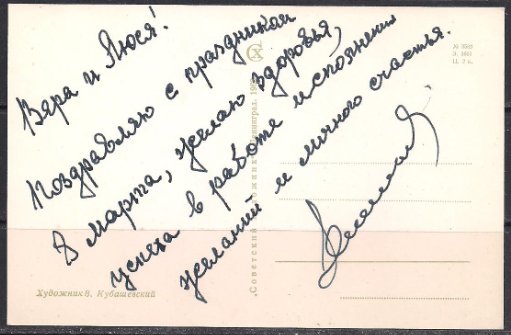 Вера и Люся!
Поздравляю с праздником
8 Марта, желаю здоровья,
успеха в работе исполнения
желаний и личного счастья.
Художник В. Кубашевский
"Советский художник"
Ленинград. 19
СХ
№
Ц. 7 к.